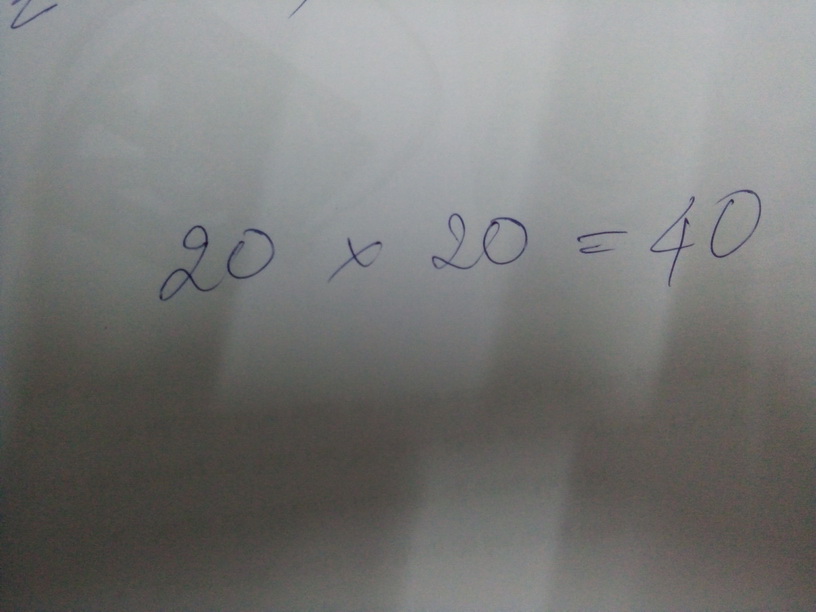 20 × 20 = 40